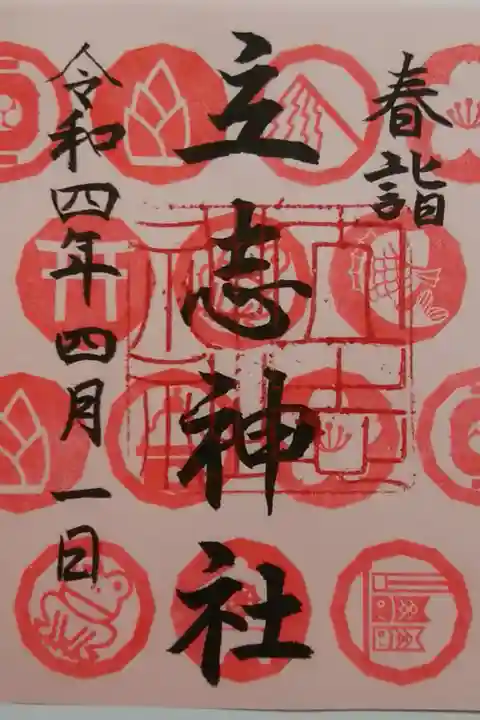 春詣
立志神社
令和四年四月一日